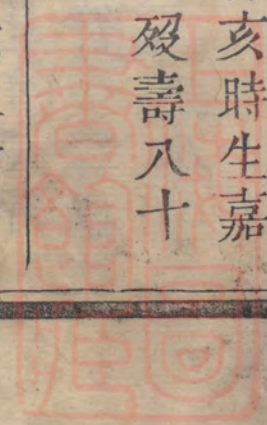 亥時生嘉
歿壽八十